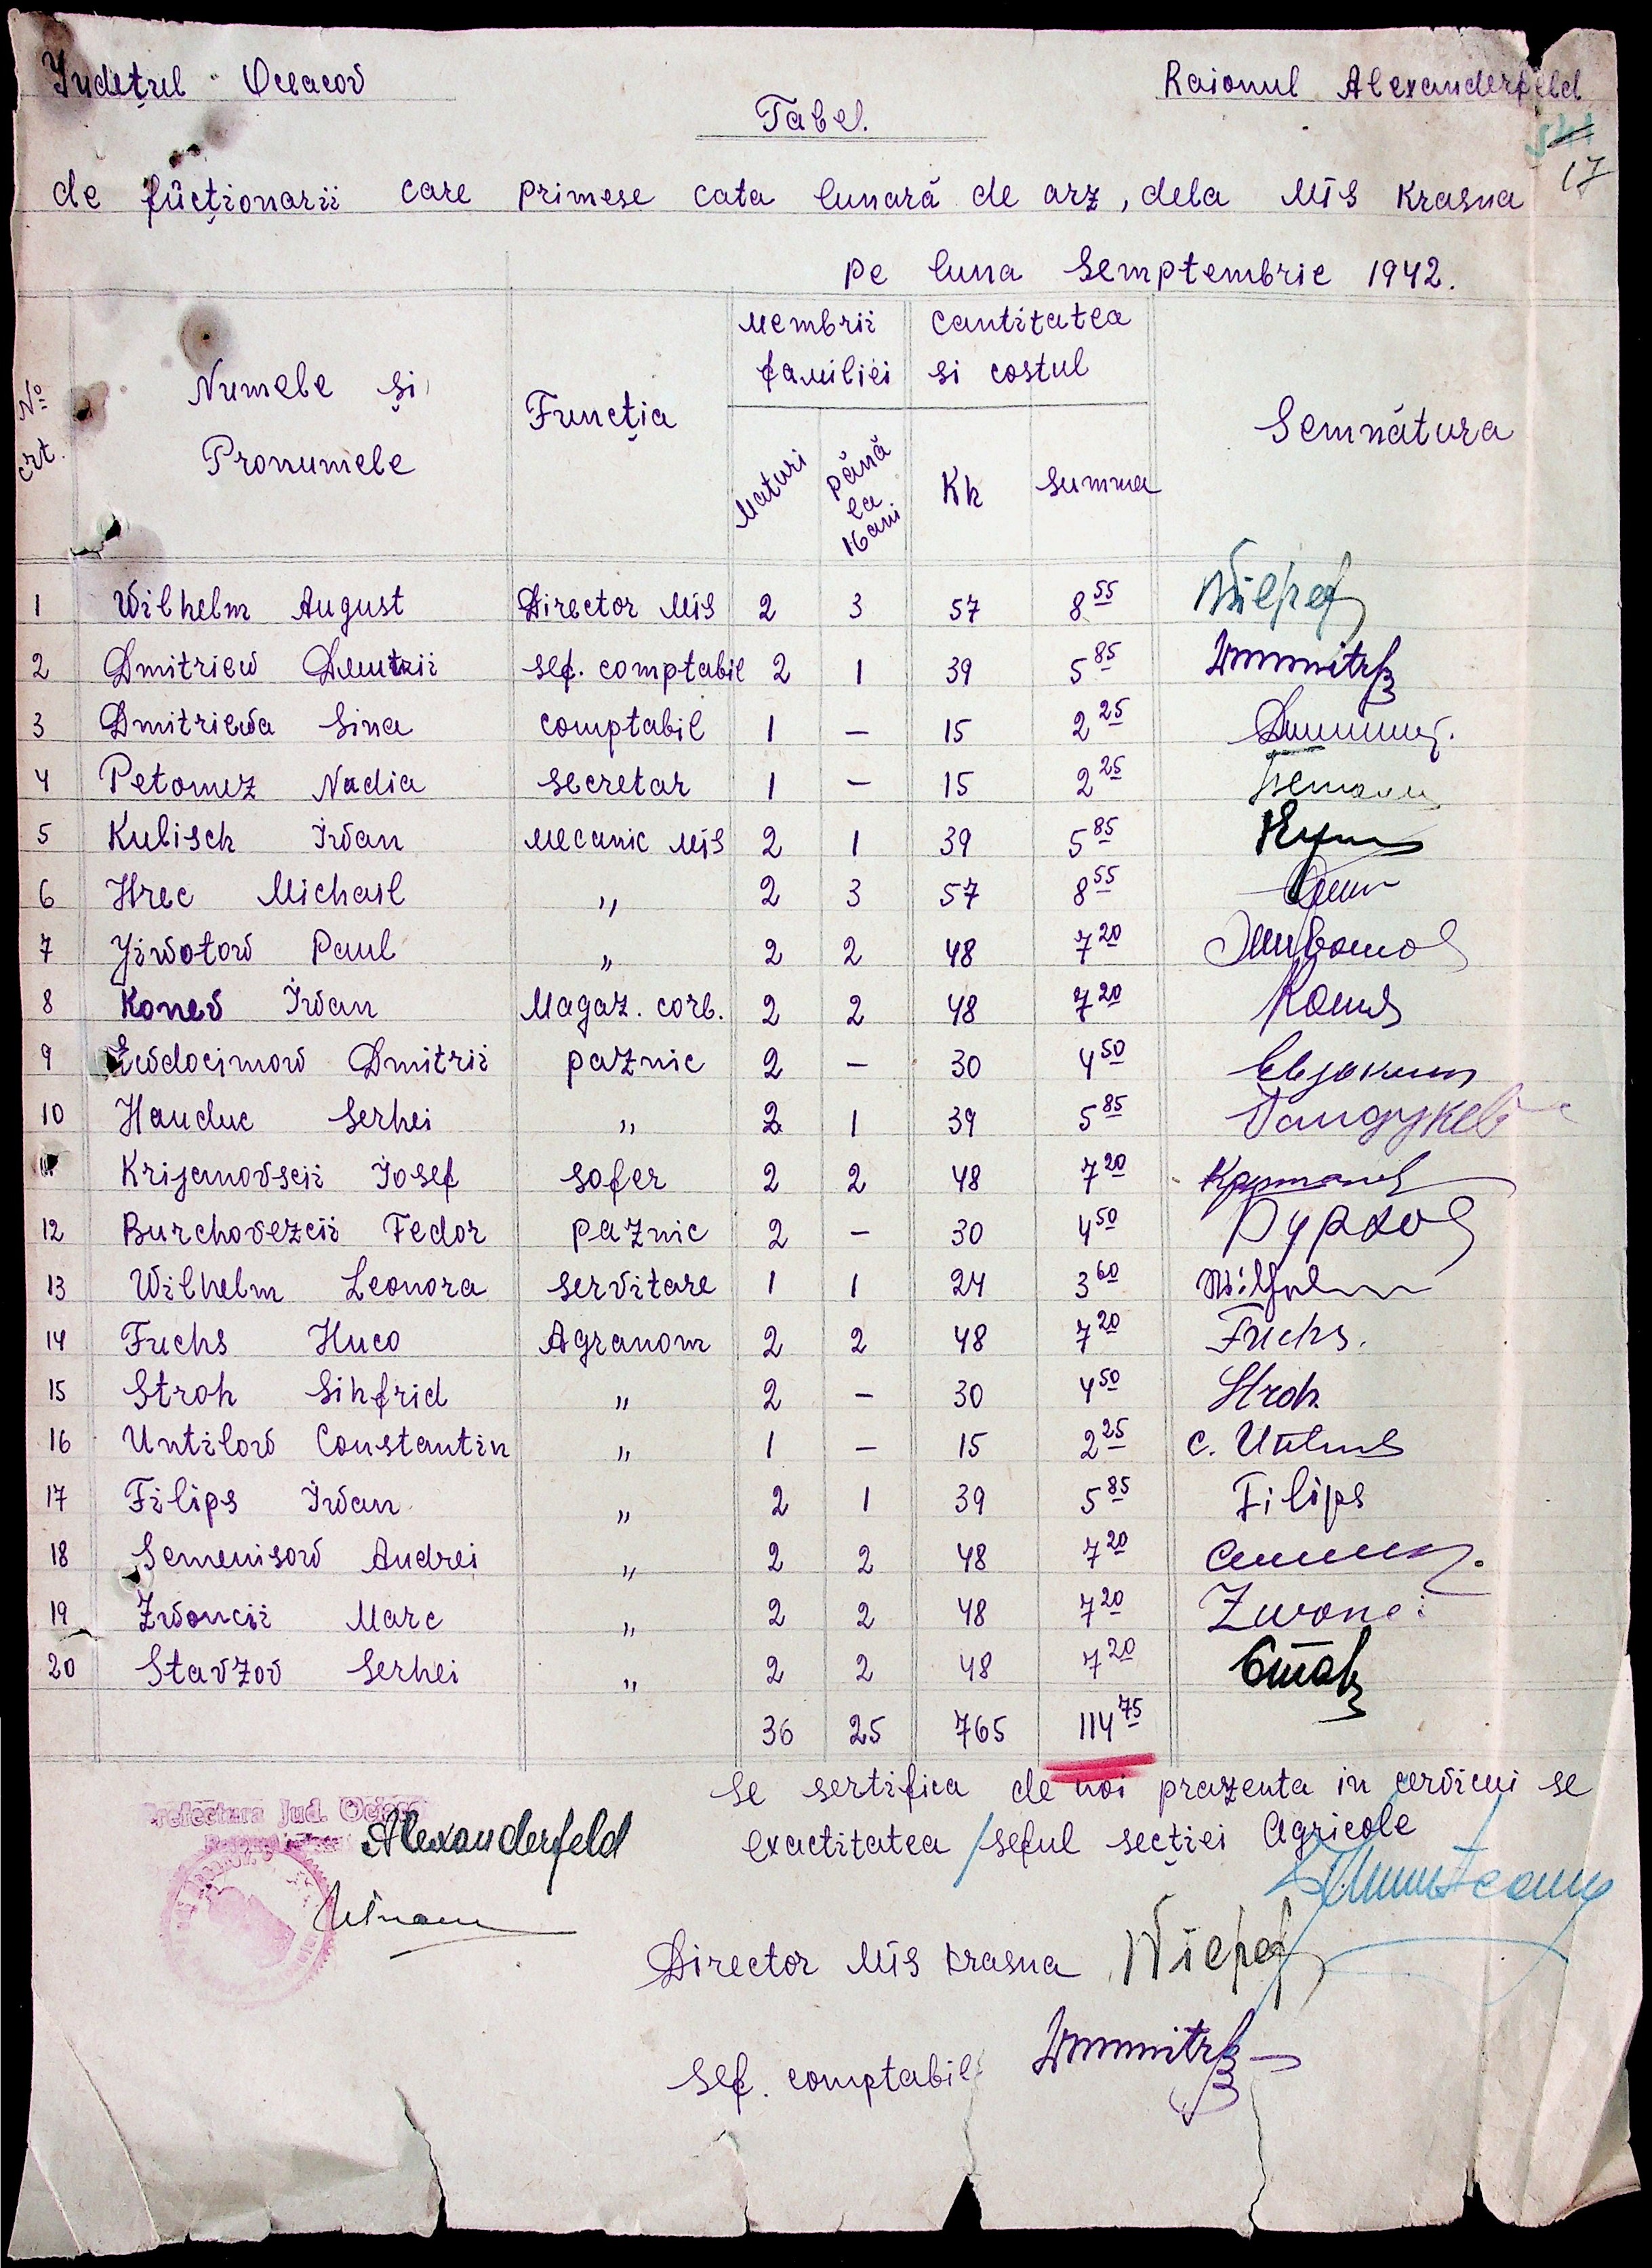 Județul Oceacov
Raionul Alexanderfeld
Tabel.
17
de fucționarii care primese cata lunară de arz, dela MTS Krasna
pe luna Semptembrie 1942.
№ crt.
Numele și Pronumele
Funcția
Membrii familiei
Maturi
până la 16 ani
Cantitatea si costul
Kh
Summa
Semnătura
1 Wilhelm August Director MTS 2 3 57 8 55
2 Dmitriew Dmitrii sef. comptabil 2 1 39 5 85
3 Dmitriewa Sina comptabil 1 — 15 2 25
4 Petomez Nadia secretar 1 — 15 2 25
5 Kulisch Iwan Mecanic MTS 2 1 39 5 85
6 Hrec Michail " 2 3 57 8 55
7 Jiwotow Paul " 2 2 48 7 20 Животов
8 Konev Iwan Magaz. corb. 2 2 48 7 20
9 Ewdocimow Dmitrii paznic 2 — 30 4 50 Евдоким
10 Hauduc Serhei " 2 1 39 5 85
11 Krijanovscii Iosef sofer 2 2 48 7 20
12 Burchovezcii Fedor paznic 2 — 30 4 50
13 Wilhelm Leonora servitare 1 1 24 3 60 Wilhelm
14 Fuchs Huco Agranom 2 2 48 7 20 Fuchs.
15 Stroh Sihfrid " 2 — 30 4 50 Stroh
16 Untilow Constantin " 1 — 15 2 25
17 Filips Iwan " 2 1 39 5 85 Filips
18 Semenisow Andrei " 2 2 48 7 20
19 Zwoncii Marc " 2 2 48 7 20
20 Stavzov Serhei " 2 2 48 7 20
36 25 765 114 75
Se sertifica de noi prazenta in cervicui se
exactitatea / seful secției Agricole
Prefectura Jud. Oceacov
Alexanderfeld
Director MTS Krasna
sef. comptabil